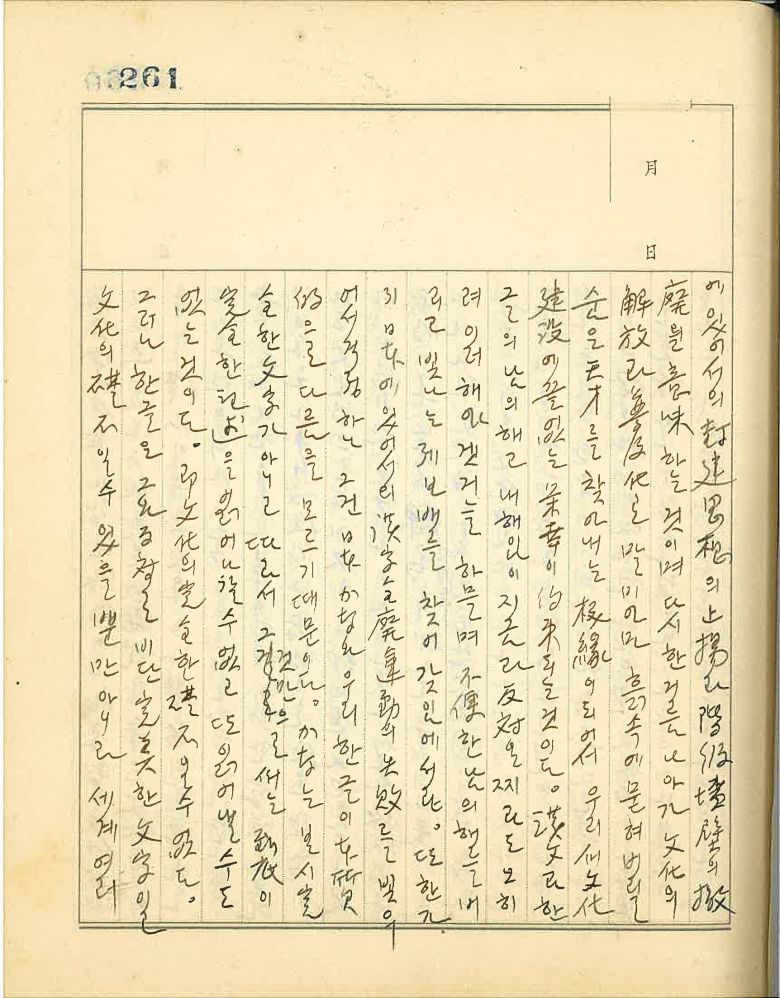 261
月
日
에 있어서의 封建思想의 止揚과 階級墻壁의 撤
廢를 意味하는 것이며 다시 한거름 나아가 文化의
解放과 普及化로 말미아마 흙속에 묻혀버릴
숨은 天才를 찾아내는 機緣이 되어서 우리 새文化
建設에 끝없는 榮幸이 約束되는것이다. 漢文과 한
글의 남의 해과 내해임이 지금과 反対로 찌라도 오히
려 이러해야겠거늘 하물며 不便한 남의 해를 버
리고 빛나는 제 보배를 찾어 갖임에서랴. 또 한가
지 日本에 있어서의 漢字全廢運動의 失敗를 빛우
어서 걱정하나 그건 日本かな와 우리 한글이 本質
的으로 다름을 모르기 때문이다. かな는 본시 完
全한 文字가 아니고 따라서 그것만으로서는
完全한 을 읽어나갈 수 없고 또 읽어낼 수도
없는 것이다. 即 文化의 完全한 礎石일수 없다.
그러나 한글은 그와 反対로 비단 完美한 文字일
文化의 礎石일수 있을 뿐만 아니라 세계 여러